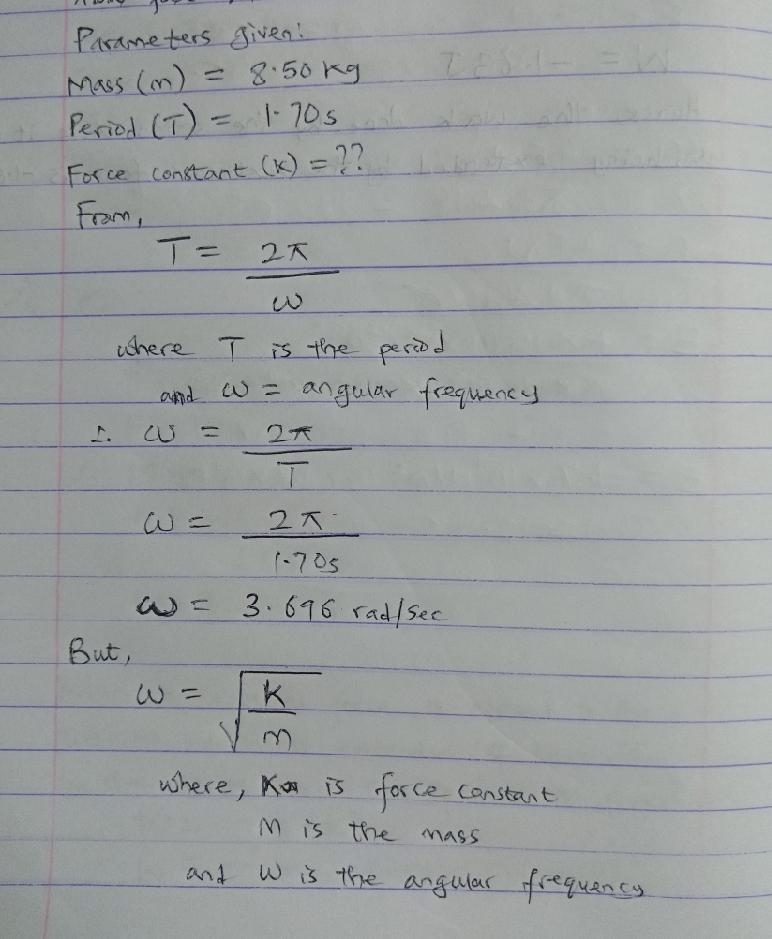 Parameters given:
Mass (m) = 8.50 kg
Period (T) = 1.70s
Force constant (K) = ??
From,
T = 2π
ω
where T is the period
and ω = angular frequency
∴ ω = 2π
T
ω = 2π
1.70s
ω = 3.696 rad/sec
But,
ω = √ K
m
where, K is force constant
M is the mass
and W is the angular frequency